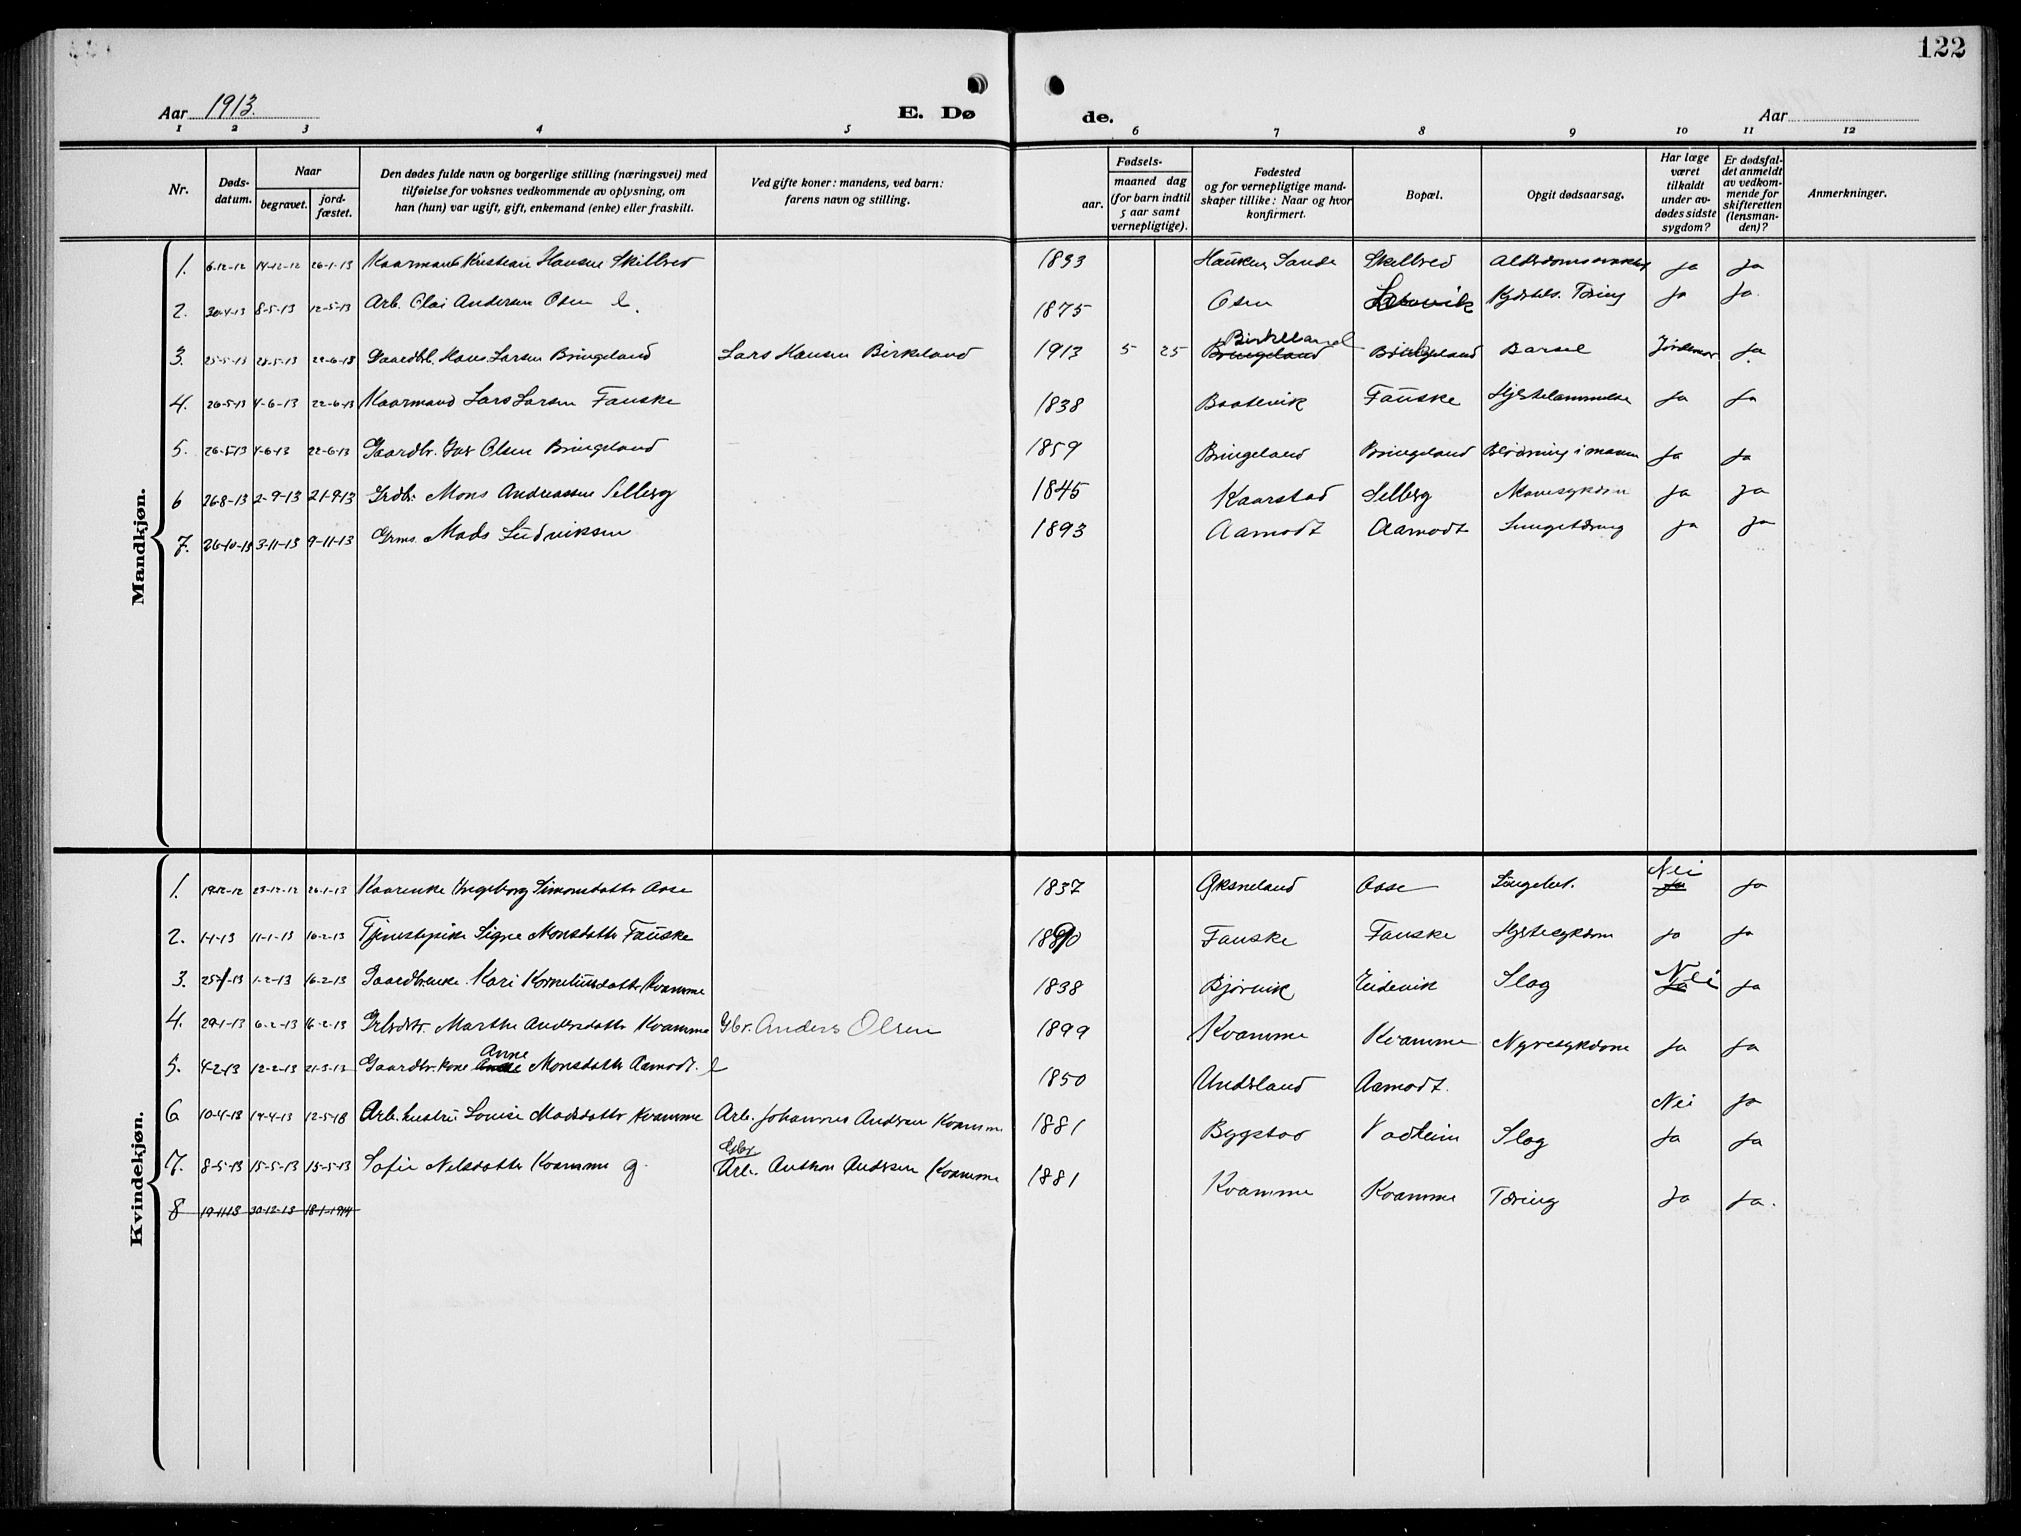 122
Aar 1913. E. Dø de. Aar
1 2 3 4 5 6 7 8 9 10 11 12
Nr. Døds-datum. Naar begravet. jord-fæstet. Den dødes fulde navn og borgerlige stilling (næringsvei) med tilføielse for voksnes vedkommende av oplysning, om han (hun) var ugift, gift, enkemand (enke) eller fraskilt. Ved gifte koner: mandens, ved barn: farens navn og stilling. Fødsels- aar. maaned dag (for barn indtil 5 aar samt vernepligtige). Fødested og for vernepligtige mand-skaper tillike: Naar og hvor konfirmert. Bopæl. Opgit dødsaarsag. Har læge været tilkaldt under av-dødes sidste sygdom? Er dødsfal-det anmeldt av vedkom-mende for skifteretten (lensman-den)? Anmerkninger.
Mandkjøn.
1. 6-12-12 14-12-12 26-1-13 Kaarmand Kristian Hansen Skilbred 1833 Haukens Sande Skilbred ja ja
2. 30-4-13 8-5-13 12-5-13 Arb. Olai Andersen Osen e. 1875 Osen Tæring ja ja.
3. 25-5-13 28-5-13 22-6-13 Gaardbr. Hans Larsen Bringeland Lars Hansen Birkeland 1913 5 25 Birkeland Bringeland Bringeland Barsel Jordmor ja
4. 26-5-13 4-6-13 22-6-13 Kaarmand Lars Larsen Fauske 1838 Baatevik Fauske Hjertelammelse ja ja
5. 26-5-13 4-6-13 22-6-13 Gaardbr. Olsen Bringeland 1859 Bringeland Bringeland Blødning i maven ja ja
6 26-8-13 2-9-13 21-9-13 Grdbr. Mons Andreassen Selberg 1845 Kaarstad Selberg Mavesykdom ja ja
7. 26-10-13 3-11-13 9-11-13 Grms. Mads Ludviksen 1893 Aamodt Aamodt Lungetæring ja ja
Kvindekjøn.
1. 19-12-12 23-12-12 26-1-13 Kaarenke Ingeborg Simonsdatter Aase 1837 Øksneland Aase Lungebet. Nei ja ja
2. 1-1-13 11-1-13 16-2-13 Tjenestepike Signe Monsdatter Fauske 1890 Fauske Fauske Hjertesykdom ja ja
3. 25-1-13 1-2-13 16-2-13 Gaardbrenke Kari Korneliusdatter Kvamme 1838 Bjørvik Eidevik Slag Nei ja ja
4. 29-1-13 6-2-13 16-2-13 Grbrdtr. Marthe Andersdatter Kvamme Gbr. Anders Olsen 1899 Kvamme Kvamme Nyresykdom ja ja
5. 4-2-13 12-2-13 21-3-13 Gaardbr. kone Anne Monsdatter Aamodt. e 1850 Undeland Aamodt. Nei ja
6 10-4-13 14-4-13 12-5-13 Arb. hustru Louise Madsdatter Kvamme Arb. Johannes Andersen Kvamme 1881 Bygstad Vadheim Slag ja ja
7. 8-5-13 15-5-13 15-5-13 Sofie Nelsdatter Kvamme g. Arb. Anthon Andersen Kvamme 1881 Kvamme Kvamme Tæring ja ja.
8 19-11-13 30-12-13 18-1-1914